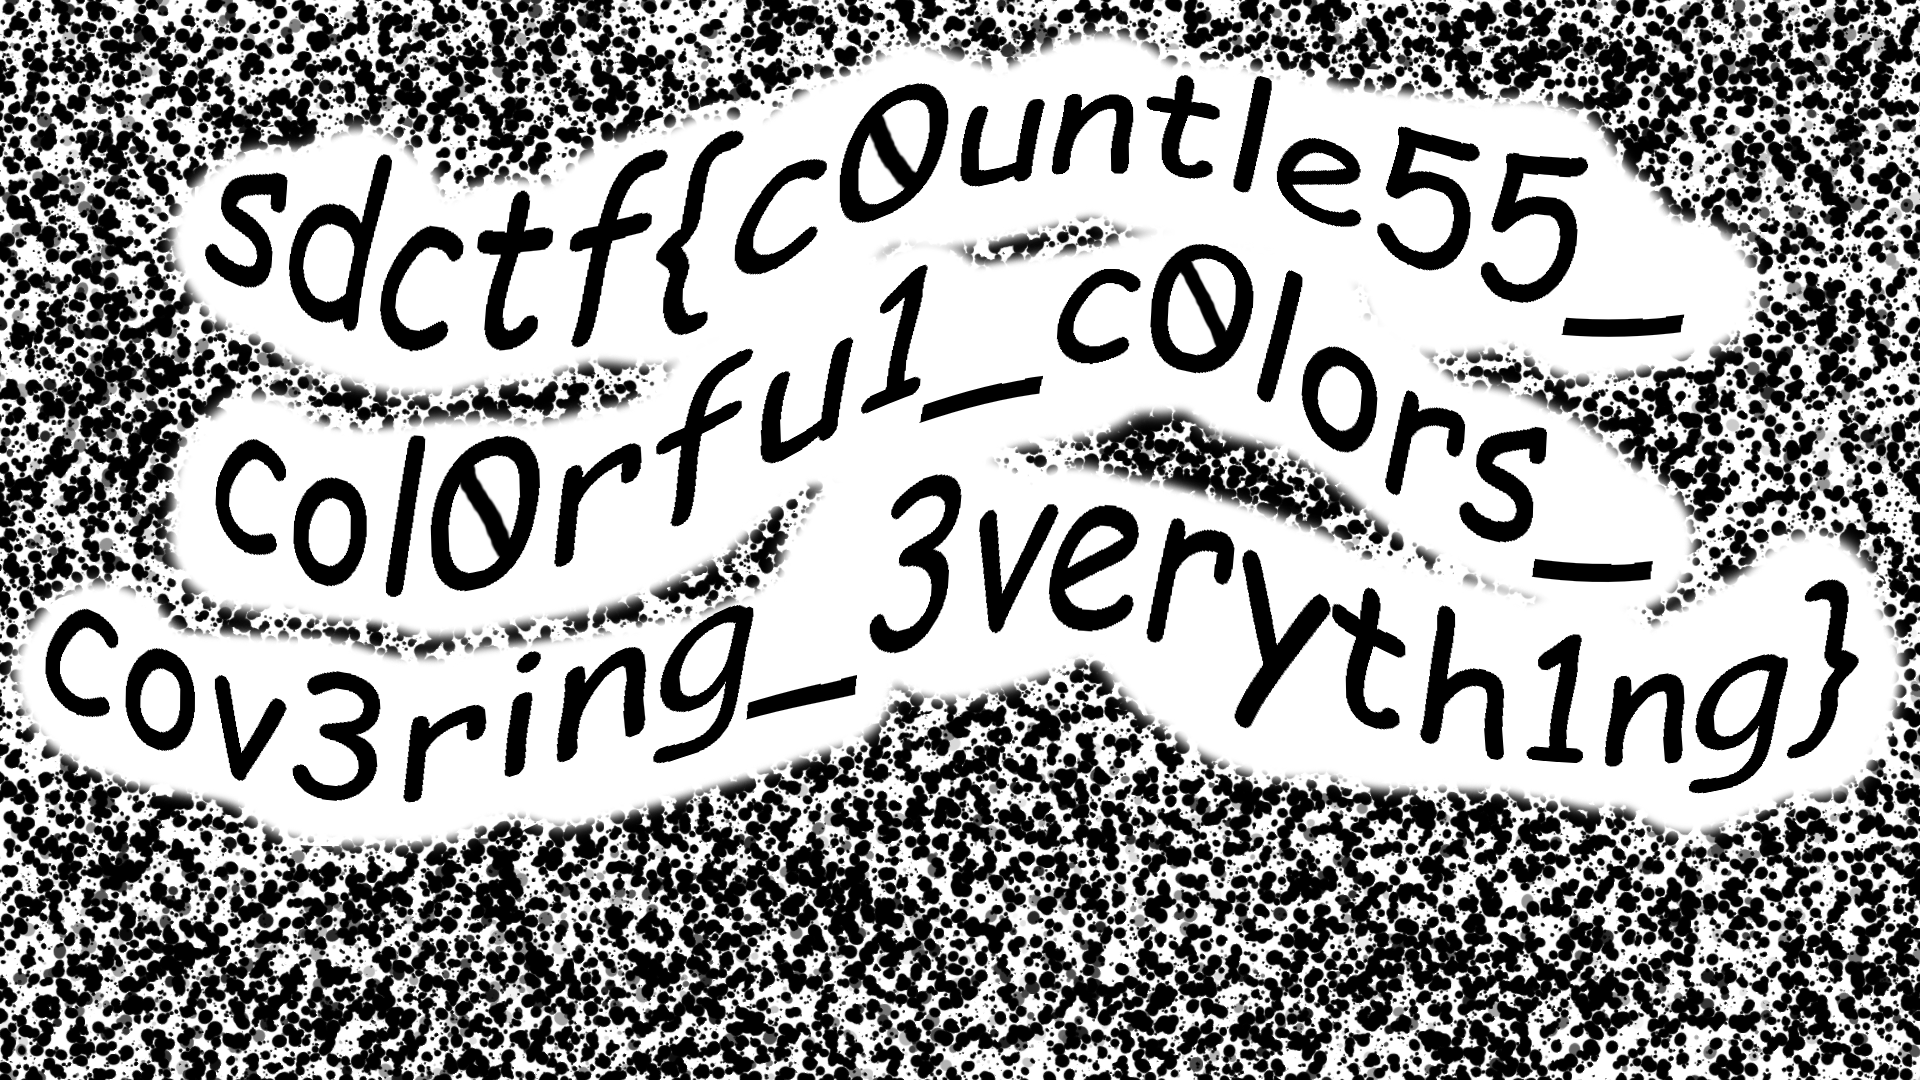 sdctf{c0untle55_
col0rfu1_c0lors_
cov3ring_3veryth1ng}